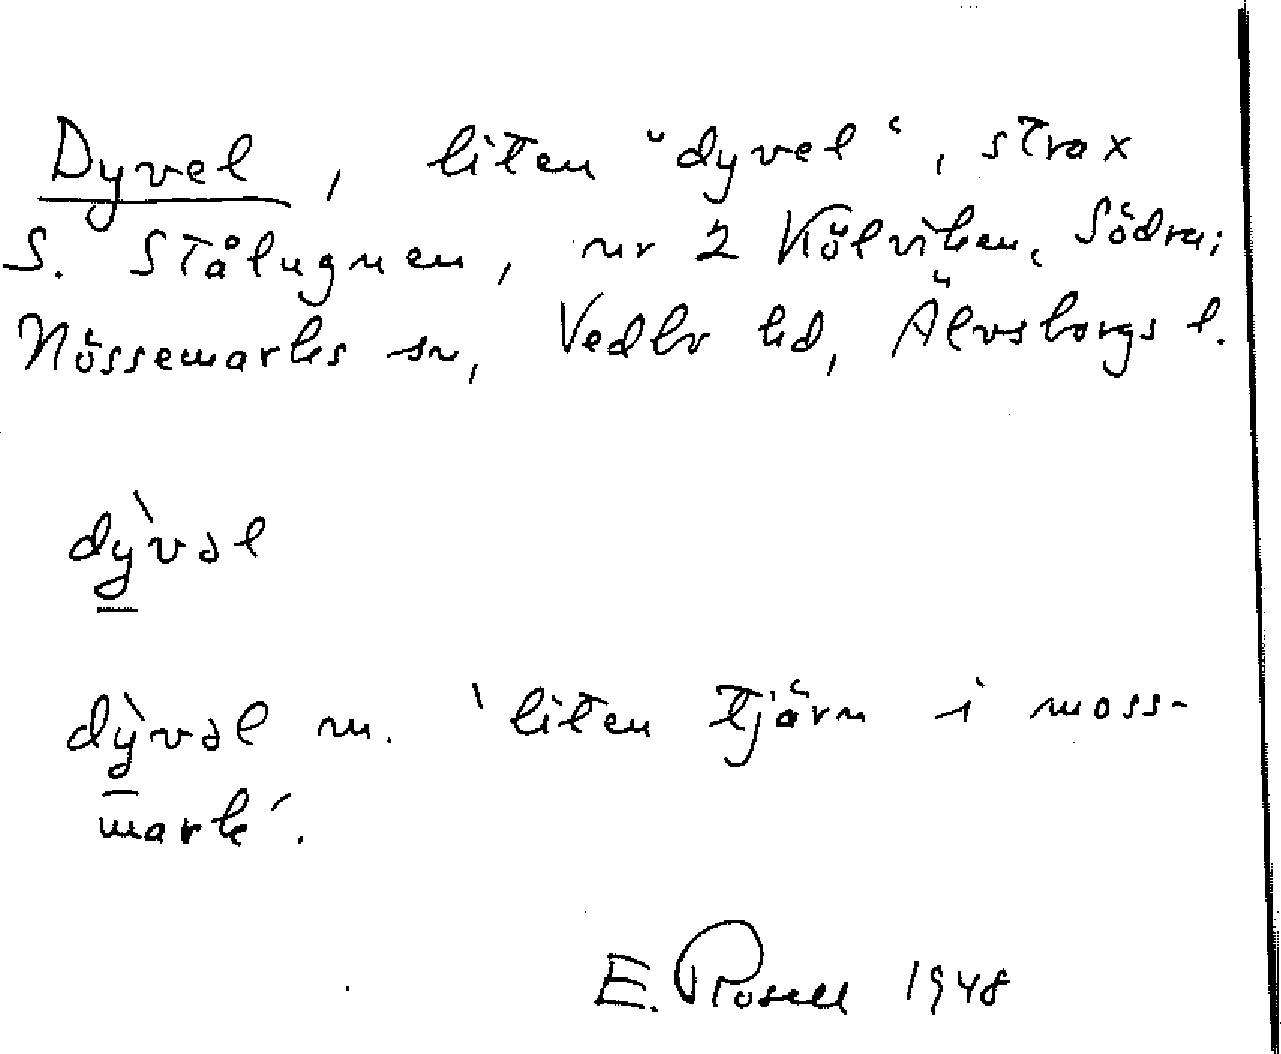 Dyvel, liten "dyvel", strax
S. Stålugnen, nr 2 Kölviken, Södra;
Nössemarks sn, Vedbo hd, Älvsborgs l.
dỳ̱vəl
dỳ̱vəl m. 'liten tjärn i moss-
mark'.
E. Rosell 1948